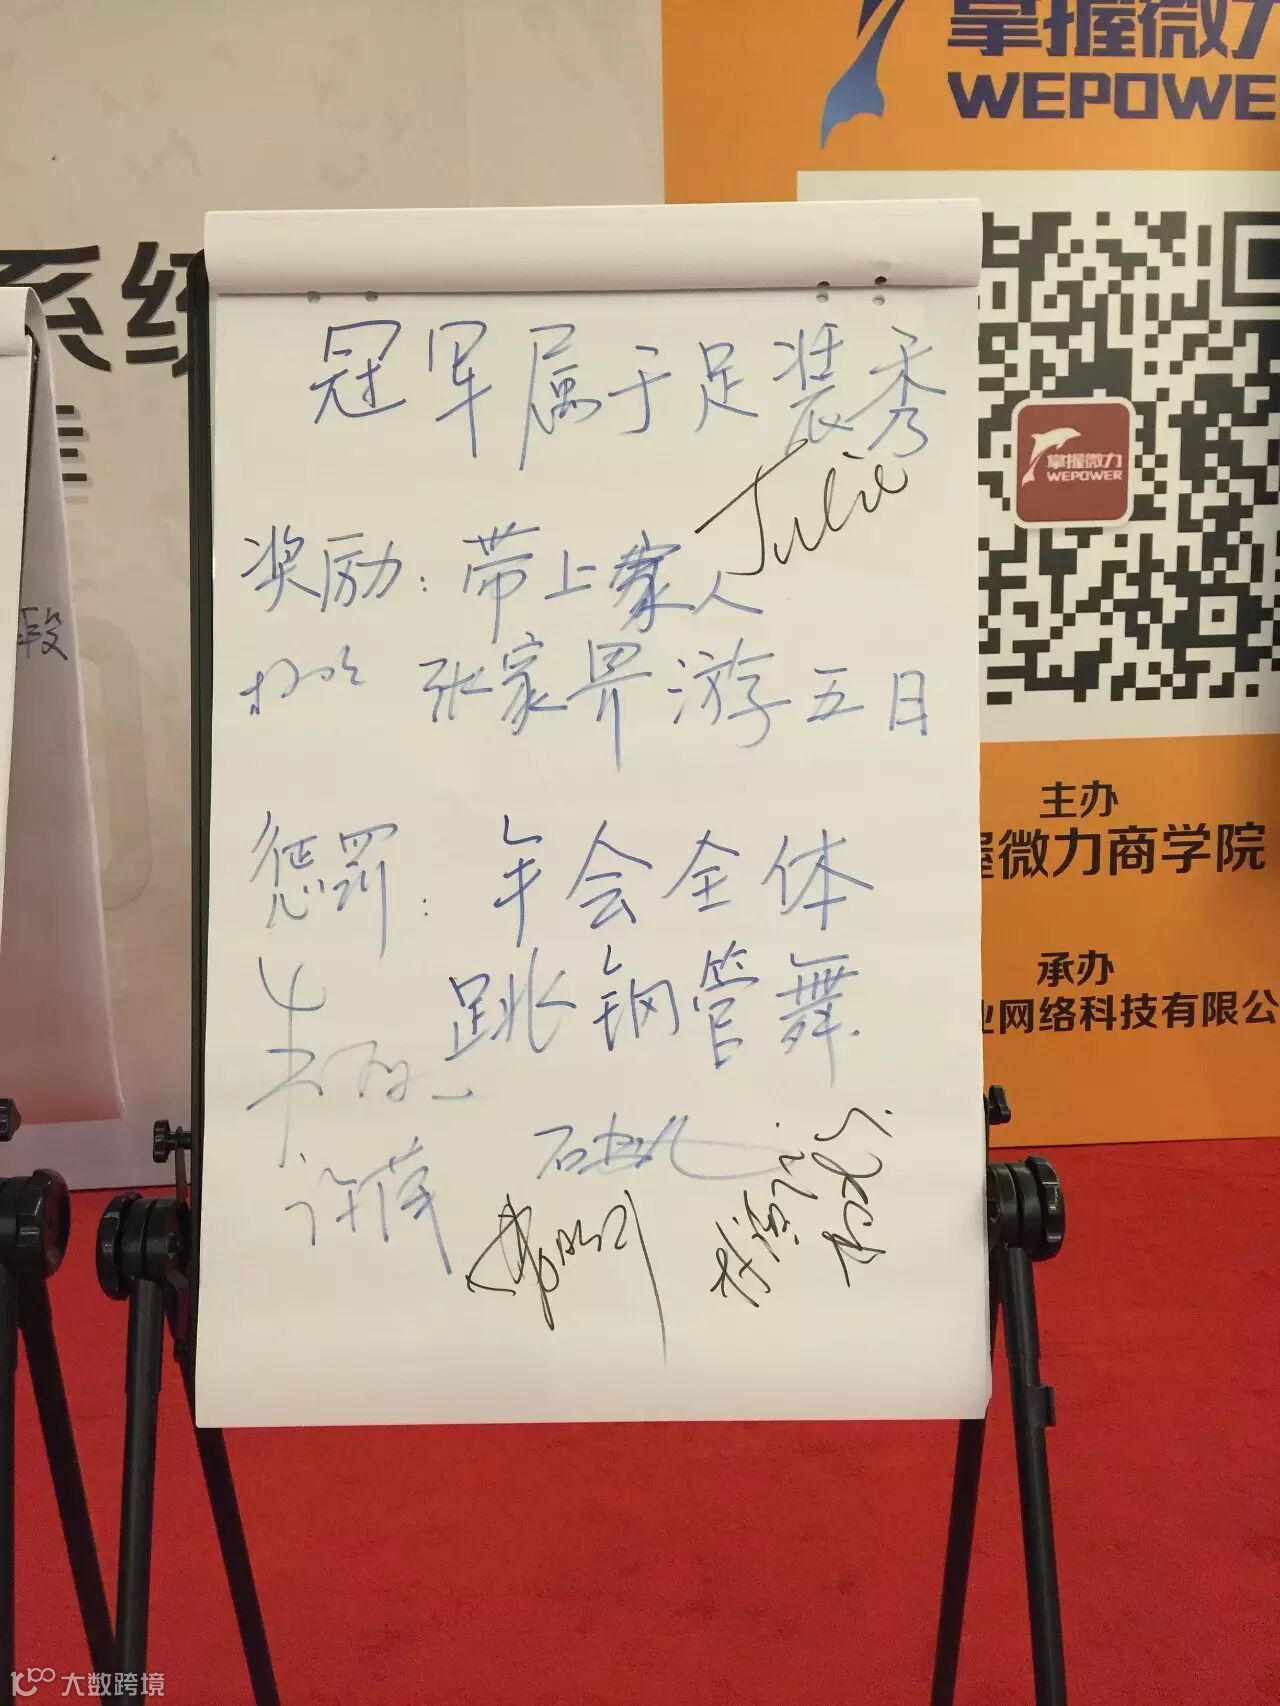 掌握微力
WEPOWE
系统
段
冠军属于足装秀
Julie
奖励：带上家人
张家界游五日
惩罚：年会全体
跳钢管舞.
许萍
掌握微力
WEPOWER
主办
握微力商学院
承办
业网络科技有限公
大数跨境